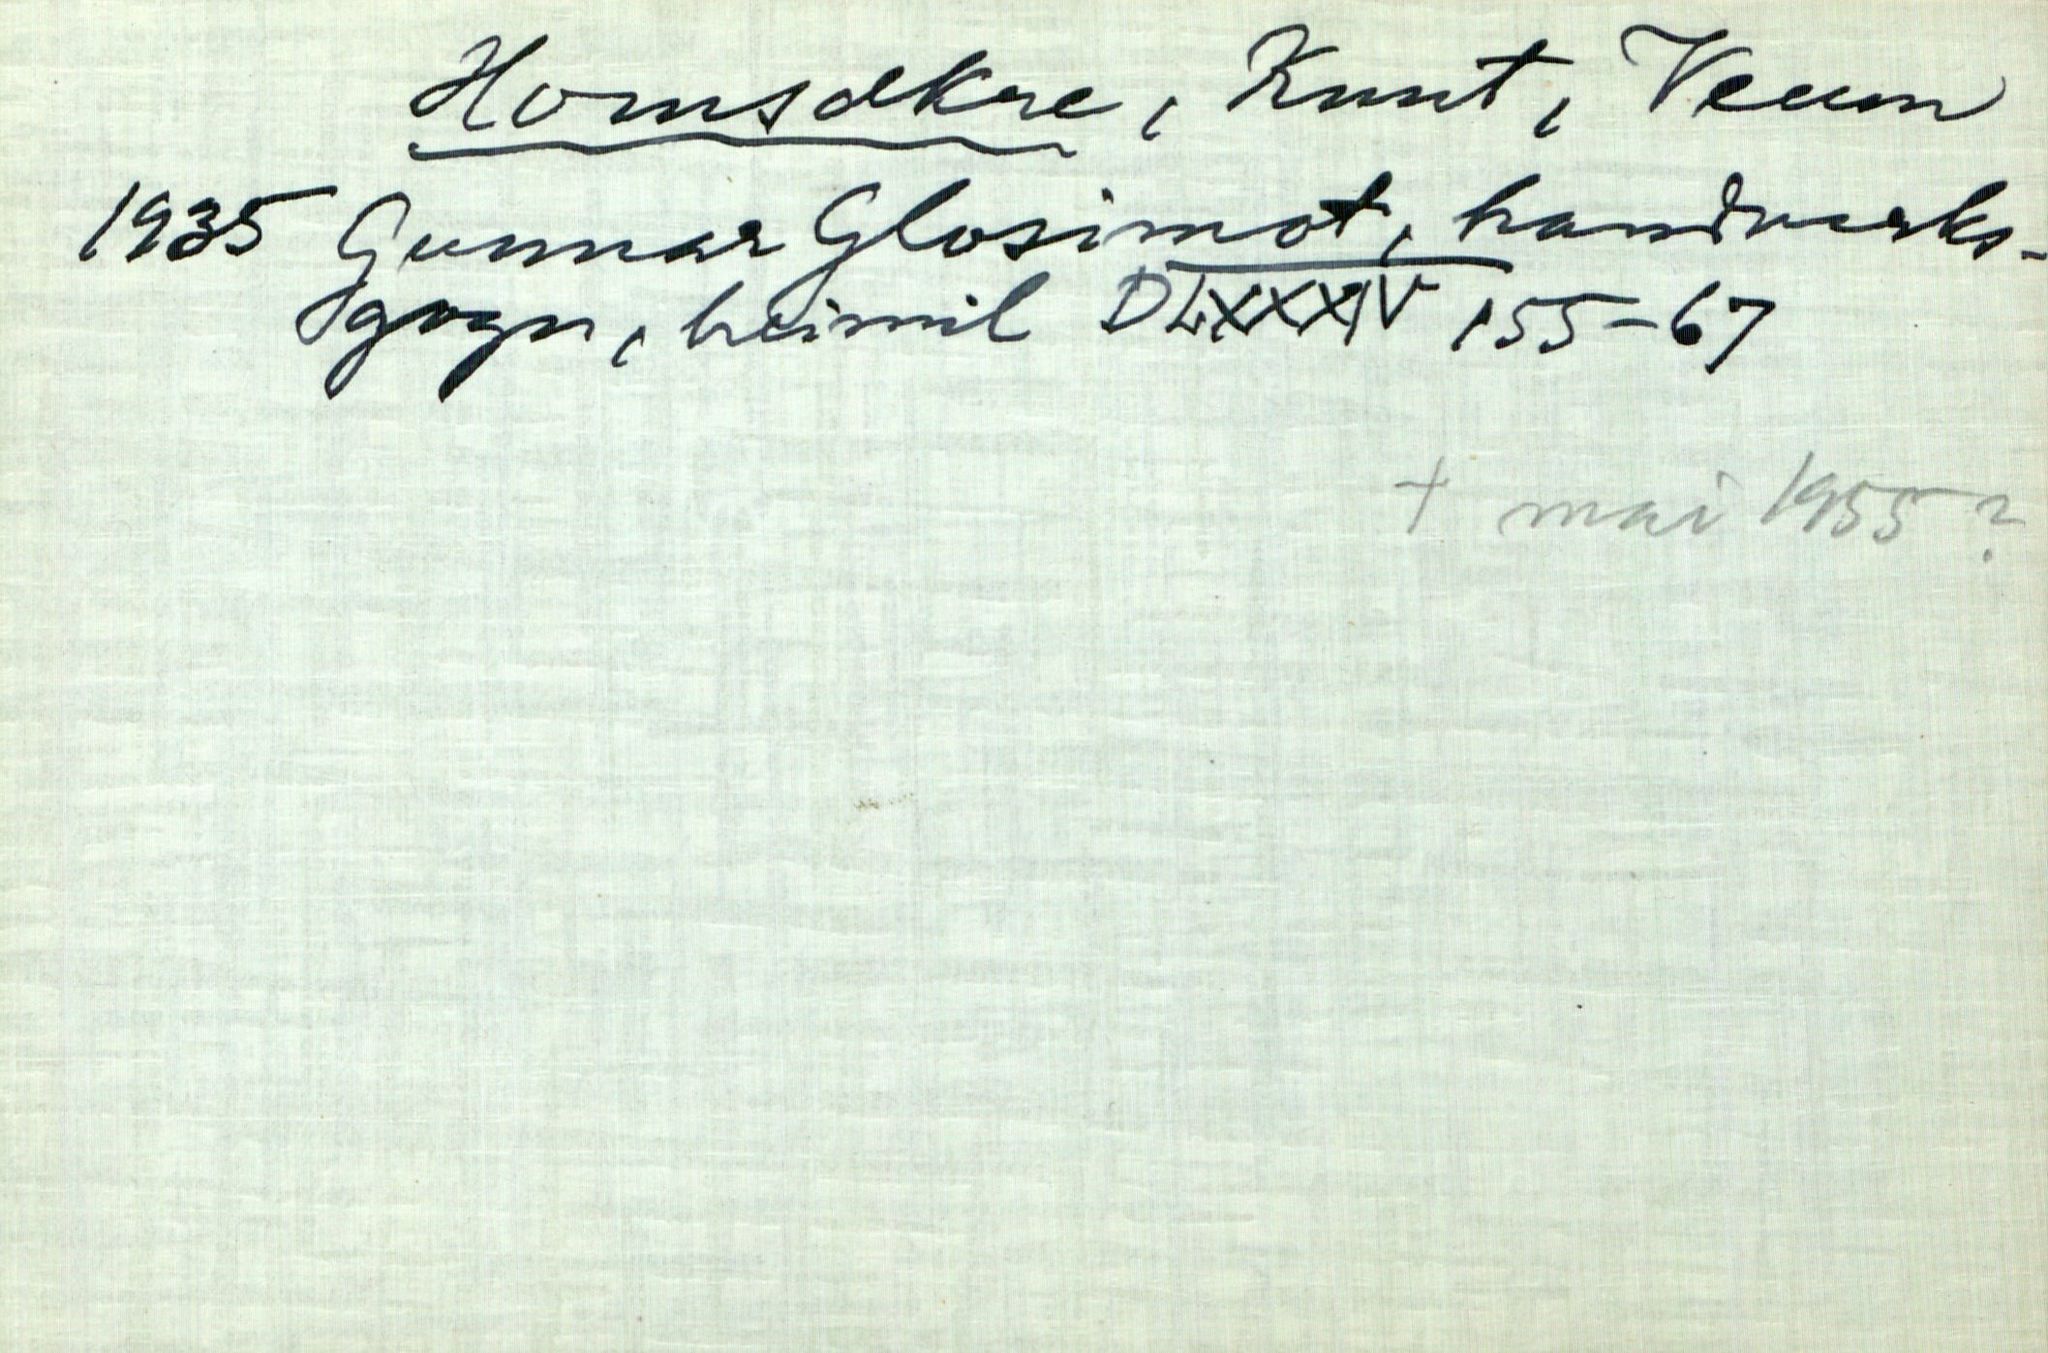 Homsdkre, Knut, Veum
1935 Gunnar Glosimot, handverks-
gogn, heimil DLXXXIV, 55-67
+ mai 1955?